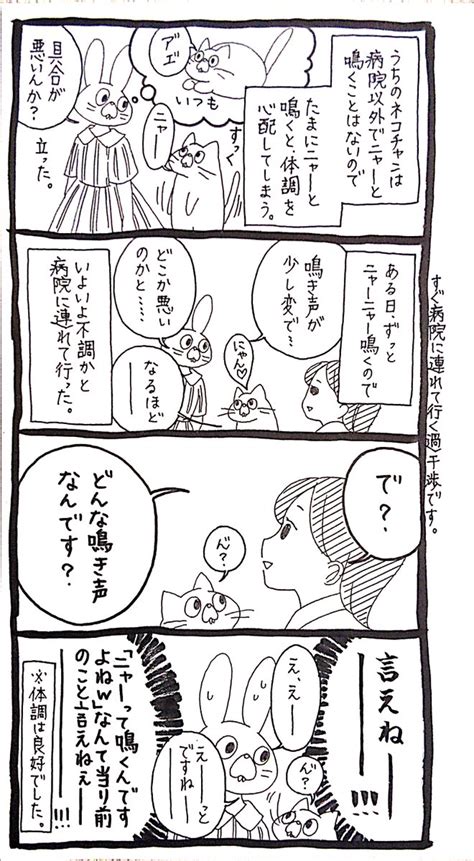 うちのネコチャンは
病院以外でニャーと
鳴くことはないので
たまにニャーと
鳴くと、体調を
心配してしまう。
アエ゛
いつも
すっく
ニャー
具合が
悪いんか?
立った。
ある日、ずっと
ニャーニャー鳴くので
鳴き声が
少し変で…
にゃん♡
どこか悪い
のかと……
なるほど
ーー
いよいよ不調かと
病院に連れて行った。
すぐ病院に連れて行く過干渉です。
で?、
ん゛?
どんな鳴き声
なんです?
言えねーー!!!
え、えー
ん゛?
えーーっと
ですねー
「ニャーって鳴くんです
よねw」なんて当り前
のこと言えねぇーー!!!
※体調は良好でした。